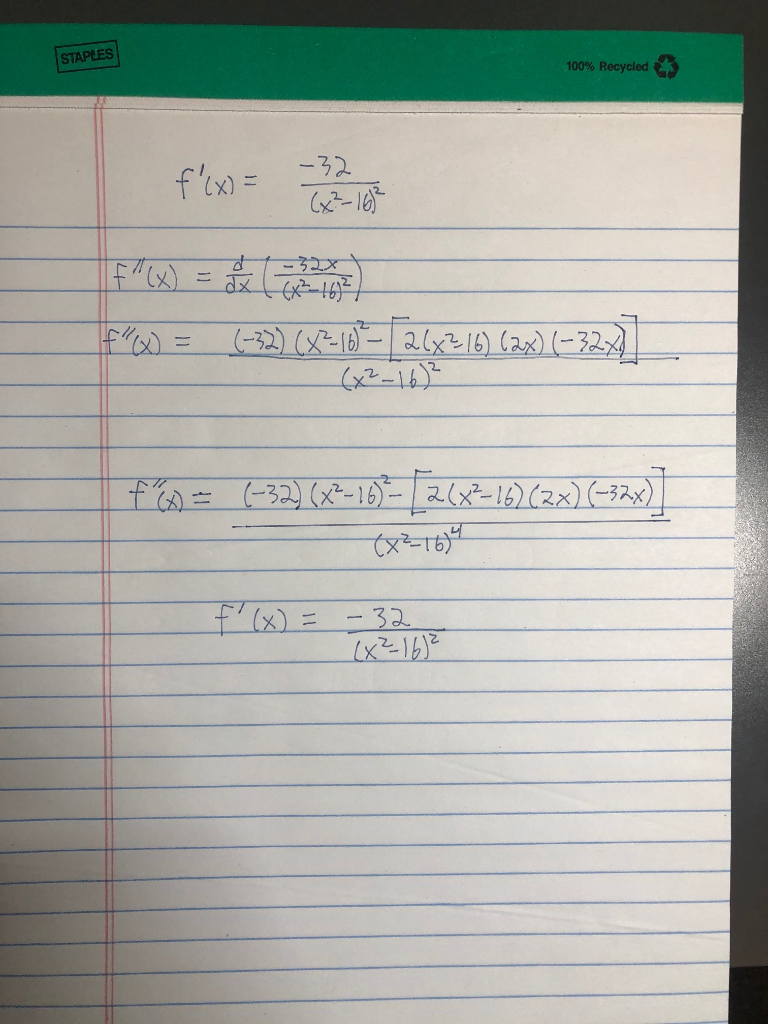 STAPLES
100% Recycled
f'(x) = -32/(x²-16)²
f''(x) = d/dx (-32x/(x²-16)²)
f''(x) = (-32)(x²-16)² - [2(x²-16)(2x)(-32x)]/(x²-16)²
f''(x) = (-32)(x²-16)² - [2(x²-16)(2x)(-32x)]/(x²-16)⁴
f'(x) = -32/(x²-16)²